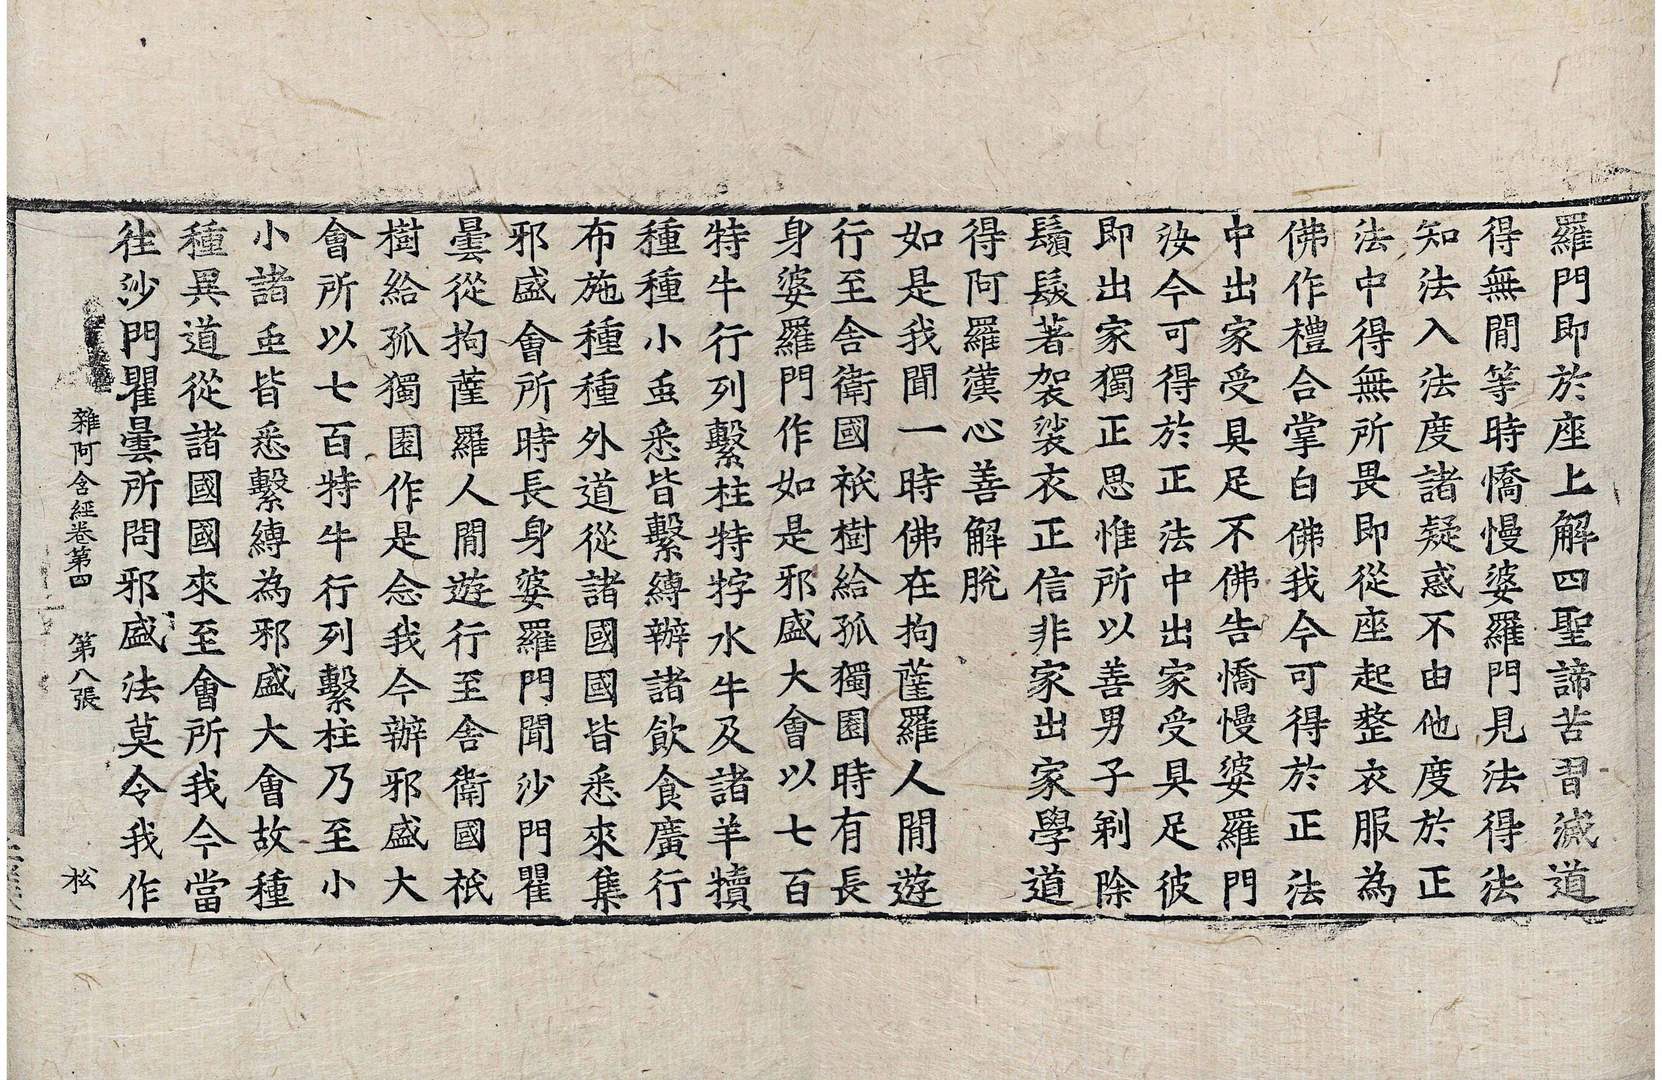 羅門即於座上解四聖諦苦習滅道
得無閒等時憍慢婆羅門見法得法
知法入法度諸疑惑不由他度於正
法中得無所畏即從座起整衣服為
佛作禮合掌白佛我今可得於正法
中出家受具足不佛告憍慢婆羅門
汝今可得於正法中出家受具足彼
即出家獨正思惟所以善男子剃除
鬚髮著袈裟衣正信非家出家學道
得阿羅漢心善解脫
如是我聞一時佛在拘薩羅人閒遊
行至舍衛國祇樹給孤獨園時有長
身婆羅門作如是邪盛大會以七百
特牛行列繫柱特牸水牛及諸羊犢
種種小䖝悉皆繫縛辦諸飲食廣行
布施種種外道從諸國國皆悉來集
邪盛會所時長身婆羅門聞沙門瞿
曇從拘薩羅人閒遊行至舍衛國祇
樹給孤獨園作是念我今辦邪盛大
會所以七百特牛行列繫柱乃至小
小諸䖝皆悉繫縛為邪盛大會故種
種異道從諸國國來至會所我今當
往沙門瞿曇所問邪盛法莫令我作
雜阿含經卷第四 第八張 松